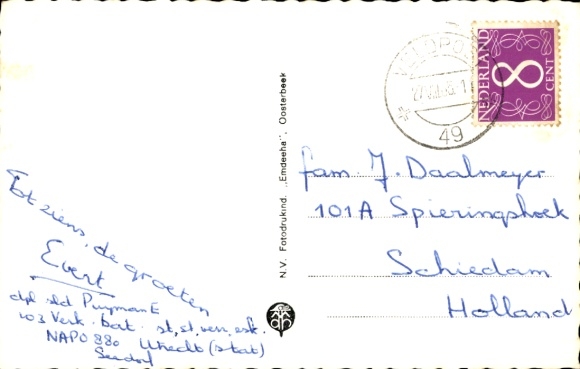 Tot ziens. de groeten
Evert
dpl sld Puymans E
103 Verk. Bat. st, st, verz, esk.
NAPO 880 Utrecht (stat)
Seedorf
N.V. Fotodrukind. „Emdeeha”, Oosterbeek
VELDPO
49
NEDERLAND
8
CENT
fam. J. Daalmeyer
101A Spieringshoek
Schiedam
Holland